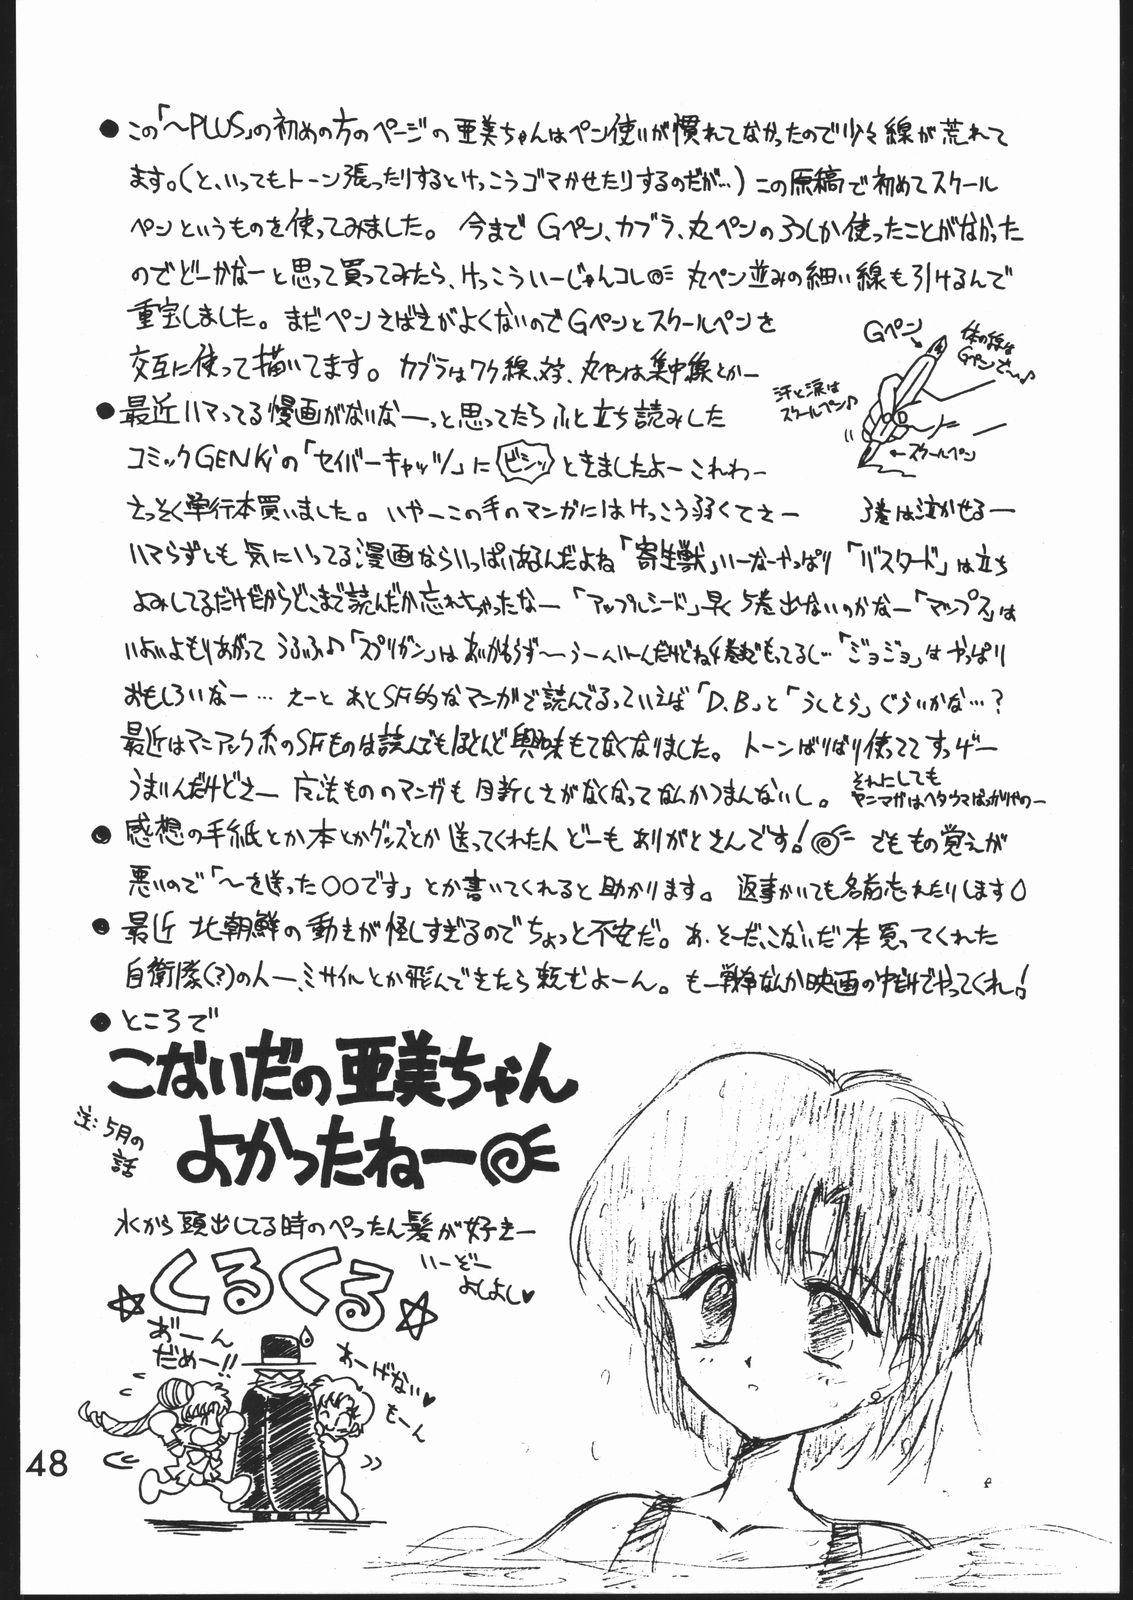 ●この「～PLUS」の初めの方のページの亜美ちゃんはペン使いが慣れてなかったので少々線が荒れて
ます。(と、いってもトーン張ったりするとけっこうゴマかせたりするのだが…)この原稿で初めてスクール
ペンというものを使ってみました。今までGペン、カブラ、丸ペンの3つしか使ったことがなかった
のでどーかなーと思って買ってみたら、けっこういーじゃんコレ 丸ペン並みの細い線も引けるんで
重宝しました。まだペンさばきがよくないのでGペンとスクールペンを
交互に使って描いてます。カブラはワク線、対、丸ペンは集中線とかー
Gペン
体の線は
Gペンでー♪
汗と涙は
スクールペン♪
←スクールペン
●最近ハマってる漫画がないなーっと思ってたらふと立ち読みした
コミックGENKiの「セイバーキャッツ」に ビシッ ときましたよーこれわー
さっそく単行本買いました。いやーこの手のマンガにはけっこう弱くてさー 3巻は泣かせるー
ハマらずとも気にいってる漫画ならいっぱいあるんだよね「寄生獣」いーなーやっぱり「バスタード」は立ち
よみしてるだけだからどこまで読んだか忘れちゃったなー「アップルシード」早く5巻出ないのかなー「マップス」は
いよいよもりあがってうふふ♪「スプリガン」はあいかわらず～うーんいーんだけどね4巻までもってるし…「ジョジョ」はやっぱり
おもしろいなー…えーとあとSF的なマンガで読んでるっていえば「D.B」と「うしとら」ぐらいかな…?
最近はマニアック系のSFものは読んでもほとんど興味もてなくなりました。トーンばりばり使っててすっげー
うまいんだけどさー 魔法もののマンガも目新しさがなくなってなんかつまんないし。
それにしても
ヤンマガはヘタウマばっかりやのー
●感想の手紙とか本とかグッズとか送ってくれた人どーもありがとさんです! でももの覚えが
悪いので「～を送った○○です」とか書いてくれると助かります。返事かいても名前忘れたりします
●最近北朝鮮の動きが怪しすぎるのでちょっと不安だ。あ、そーだ、こないだ本買ってくれた
自衛隊(?)の人ー、ミサイルとか飛んできたら頼むよーん。もー戦争なんか映画の中だけでやってくれ!
●ところで
こないだの亜美ちゃん
よかったねー
注:5月の
話
水から頭出してる時のぺったん髪が好きー
くるくる
いーぞー
よしよし♥
あ゛ーん
だめー!!
あーげない♥
もーん
48